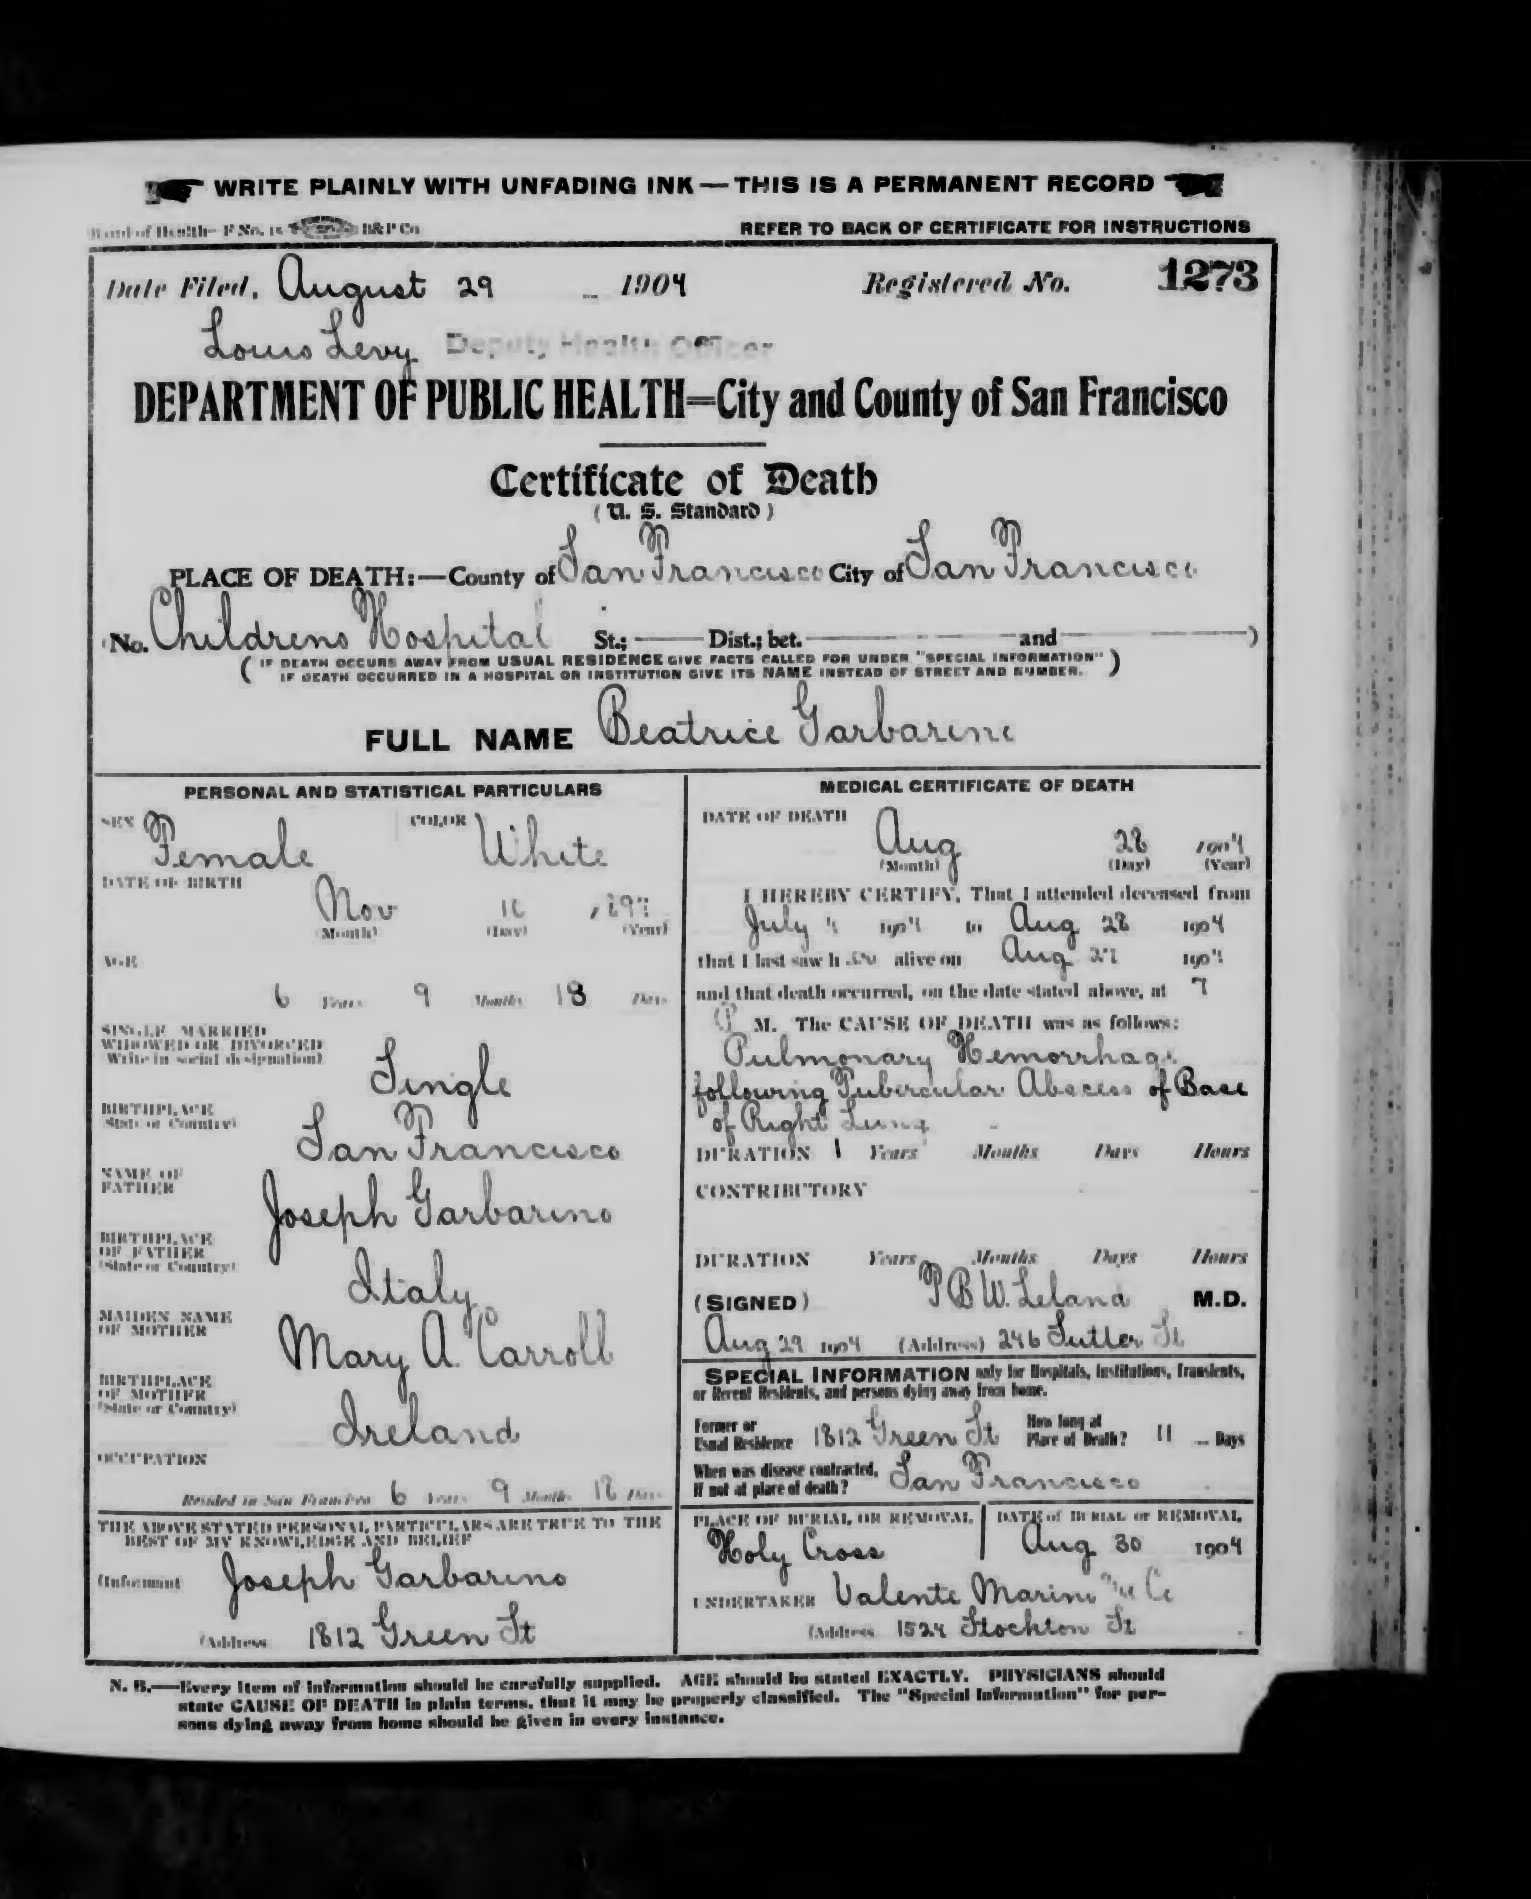 WRITE PLAINLY WITH UNFADING INK — THIS IS A PERMANENT RECORD
Board of Health—F No. 15 B&P Co
REFER TO BACK OF CERTIFICATE FOR INSTRUCTIONS
Date Filed, August 29 1904 Registered No. 1273
Louis Levy Deputy Health Officer
DEPARTMENT OF PUBLIC HEALTH=City and County of San Francisco
Certificate of Death
( U. S. Standard )
PLACE OF DEATH:—County of San Francisco City of San Francisco
No. Childrens Hospital St.; Dist.; bet. and )
( IF DEATH OCCURS AWAY FROM USUAL RESIDENCE GIVE FACTS CALLED FOR UNDER "SPECIAL INFORMATION"
IF DEATH OCCURRED IN A HOSPITAL OR INSTITUTION GIVE ITS NAME INSTEAD OF STREET AND NUMBER. )
FULL NAME Beatrice Garbarino
PERSONAL AND STATISTICAL PARTICULARS
SEX Female COLOR White
DATE OF BIRTH
Nov 10 , 1897
(Month) (Day) (Year)
AGE
6 Years 9 Months 18 Days
SINGLE MARRIED
WIDOWED OR DIVORCED
(Write in social designation)
Single
BIRTHPLACE
(State or Country)
San Francisco
NAME OF
FATHER
Joseph Garbarino
BIRTHPLACE
OF FATHER
(State or Country)
Italy
MAIDEN NAME
OF MOTHER
Mary A. Carroll
BIRTHPLACE
OF MOTHER
(State or Country)
Ireland
OCCUPATION
Resided in San Francisco 6 Years 9 Months 18 Days
THE ABOVE STATED PERSONAL PARTICULARS ARE TRUE TO THE
BEST OF MY KNOWLEDGE AND BELIEF
(Informant Joseph Garbarino
(Address 1812 Green St
MEDICAL CERTIFICATE OF DEATH
DATE OF DEATH
Aug 28 1904
(Month) (Day) (Year)
I HEREBY CERTIFY, That I attended deceased from
July 1904 to Aug 28 1904
that I last saw h er alive on Aug 27 1904
and that death occurred, on the date stated above, at 7
P M. The CAUSE OF DEATH was as follows:
Pulmonary Hemorrhage
following Tubercular Abscess of Base
of Right Lung
DURATION 1 Years Months Days Hours
CONTRIBUTORY
DURATION Years Months Days Hours
(SIGNED) T B W. Leland M.D.
Aug 29 1904 (Address) 246 Sutter St
SPECIAL INFORMATION only for Hospitals, Institutions, Transients,
or Recent Residents, and persons dying away from home.
Former or
Usual Residence 1812 Green St
How long at
Place of Death? 11 Days
When was disease contracted,
If not at place of death? San Francisco
PLACE OF BURIAL OR REMOVAL
Holy Cross
DATE of BURIAL or REMOVAL
Aug 30 1904
UNDERTAKER Valente Marini Co
(Address 1524 Stockton St
N. B.—Every item of information should be carefully supplied. AGE should be stated EXACTLY. PHYSICIANS should
state CAUSE OF DEATH in plain terms, that it may be properly classified. The "Special Information" for per-
sons dying away from home should be given in every instance.